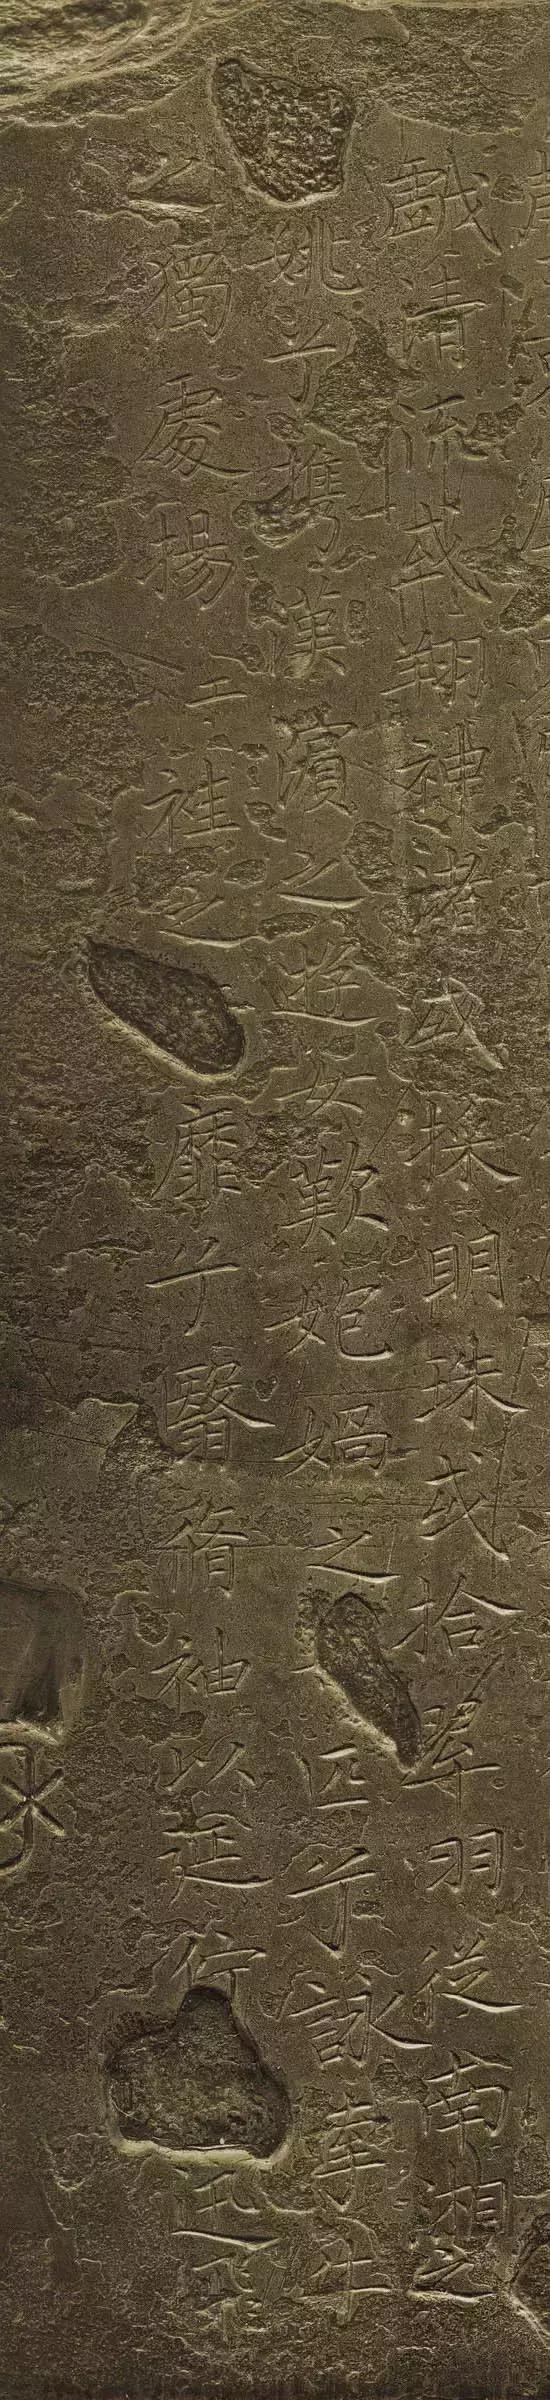 戲清流或翔神渚或採明珠或拾翠羽從南湘之
姚兮攜漢濱之遊女歎匏媧之匹兮詠牽牛
之獨處揚袿之靡兮翳脩袖以延佇迅飛